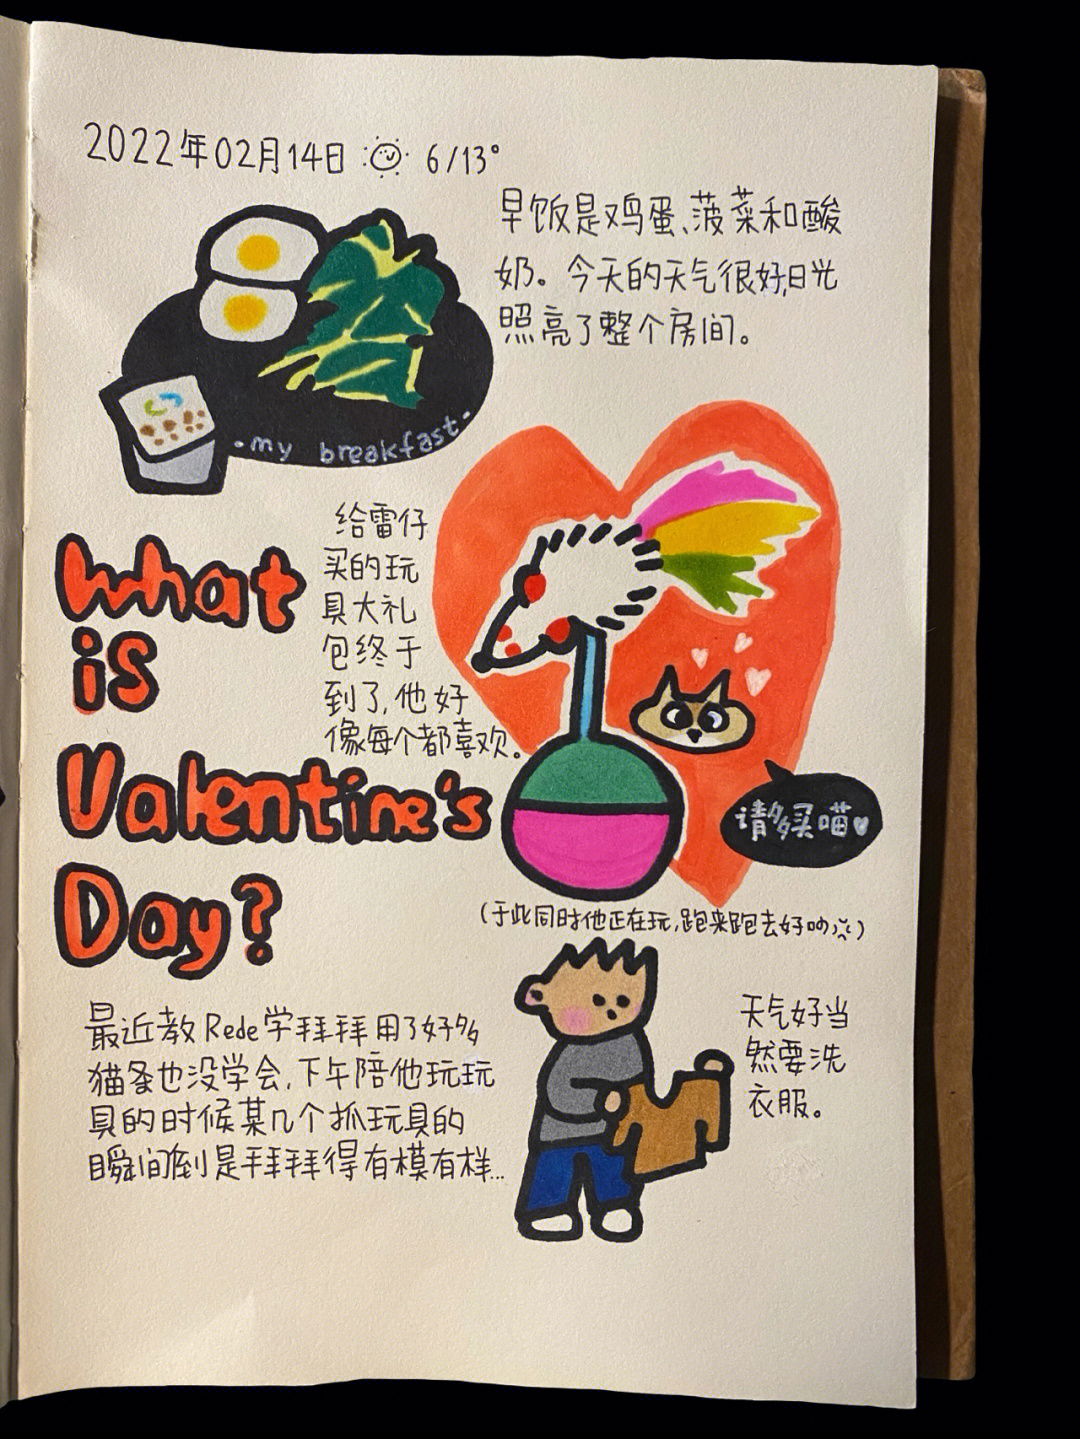 2022年02月14日 6/13°
早饭是鸡蛋、菠菜和酸
奶。今天的天气很好,日光
照亮了整个房间。
·my breakfast·
给雷仔
买的玩
具大礼
包终于
到了,他好
像每个都喜欢。
What
is
Valentine's
Day?
请多买喵♥
(于此同时他正在玩,跑来跑去好吵)
最近教Rede学拜拜用了好多
猫条也没学会,下午陪他玩玩
具的时候某几个抓玩具的
瞬间倒是拜拜得有模有样...
天气好当
然要洗
衣服。